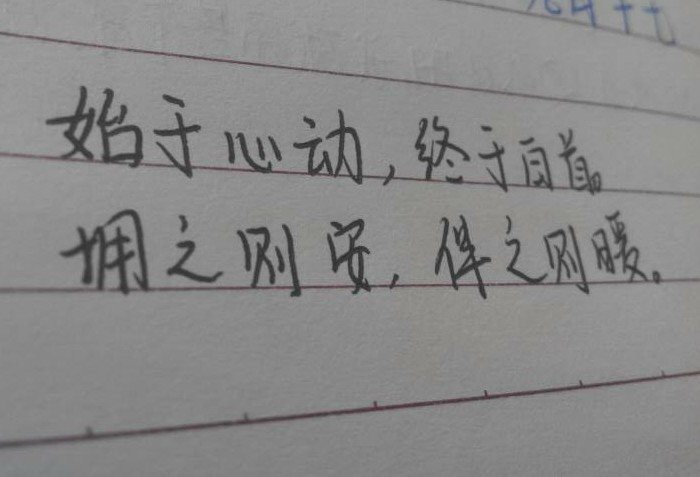 始于心动,终于白首。
拥之则安,伴之则暖。